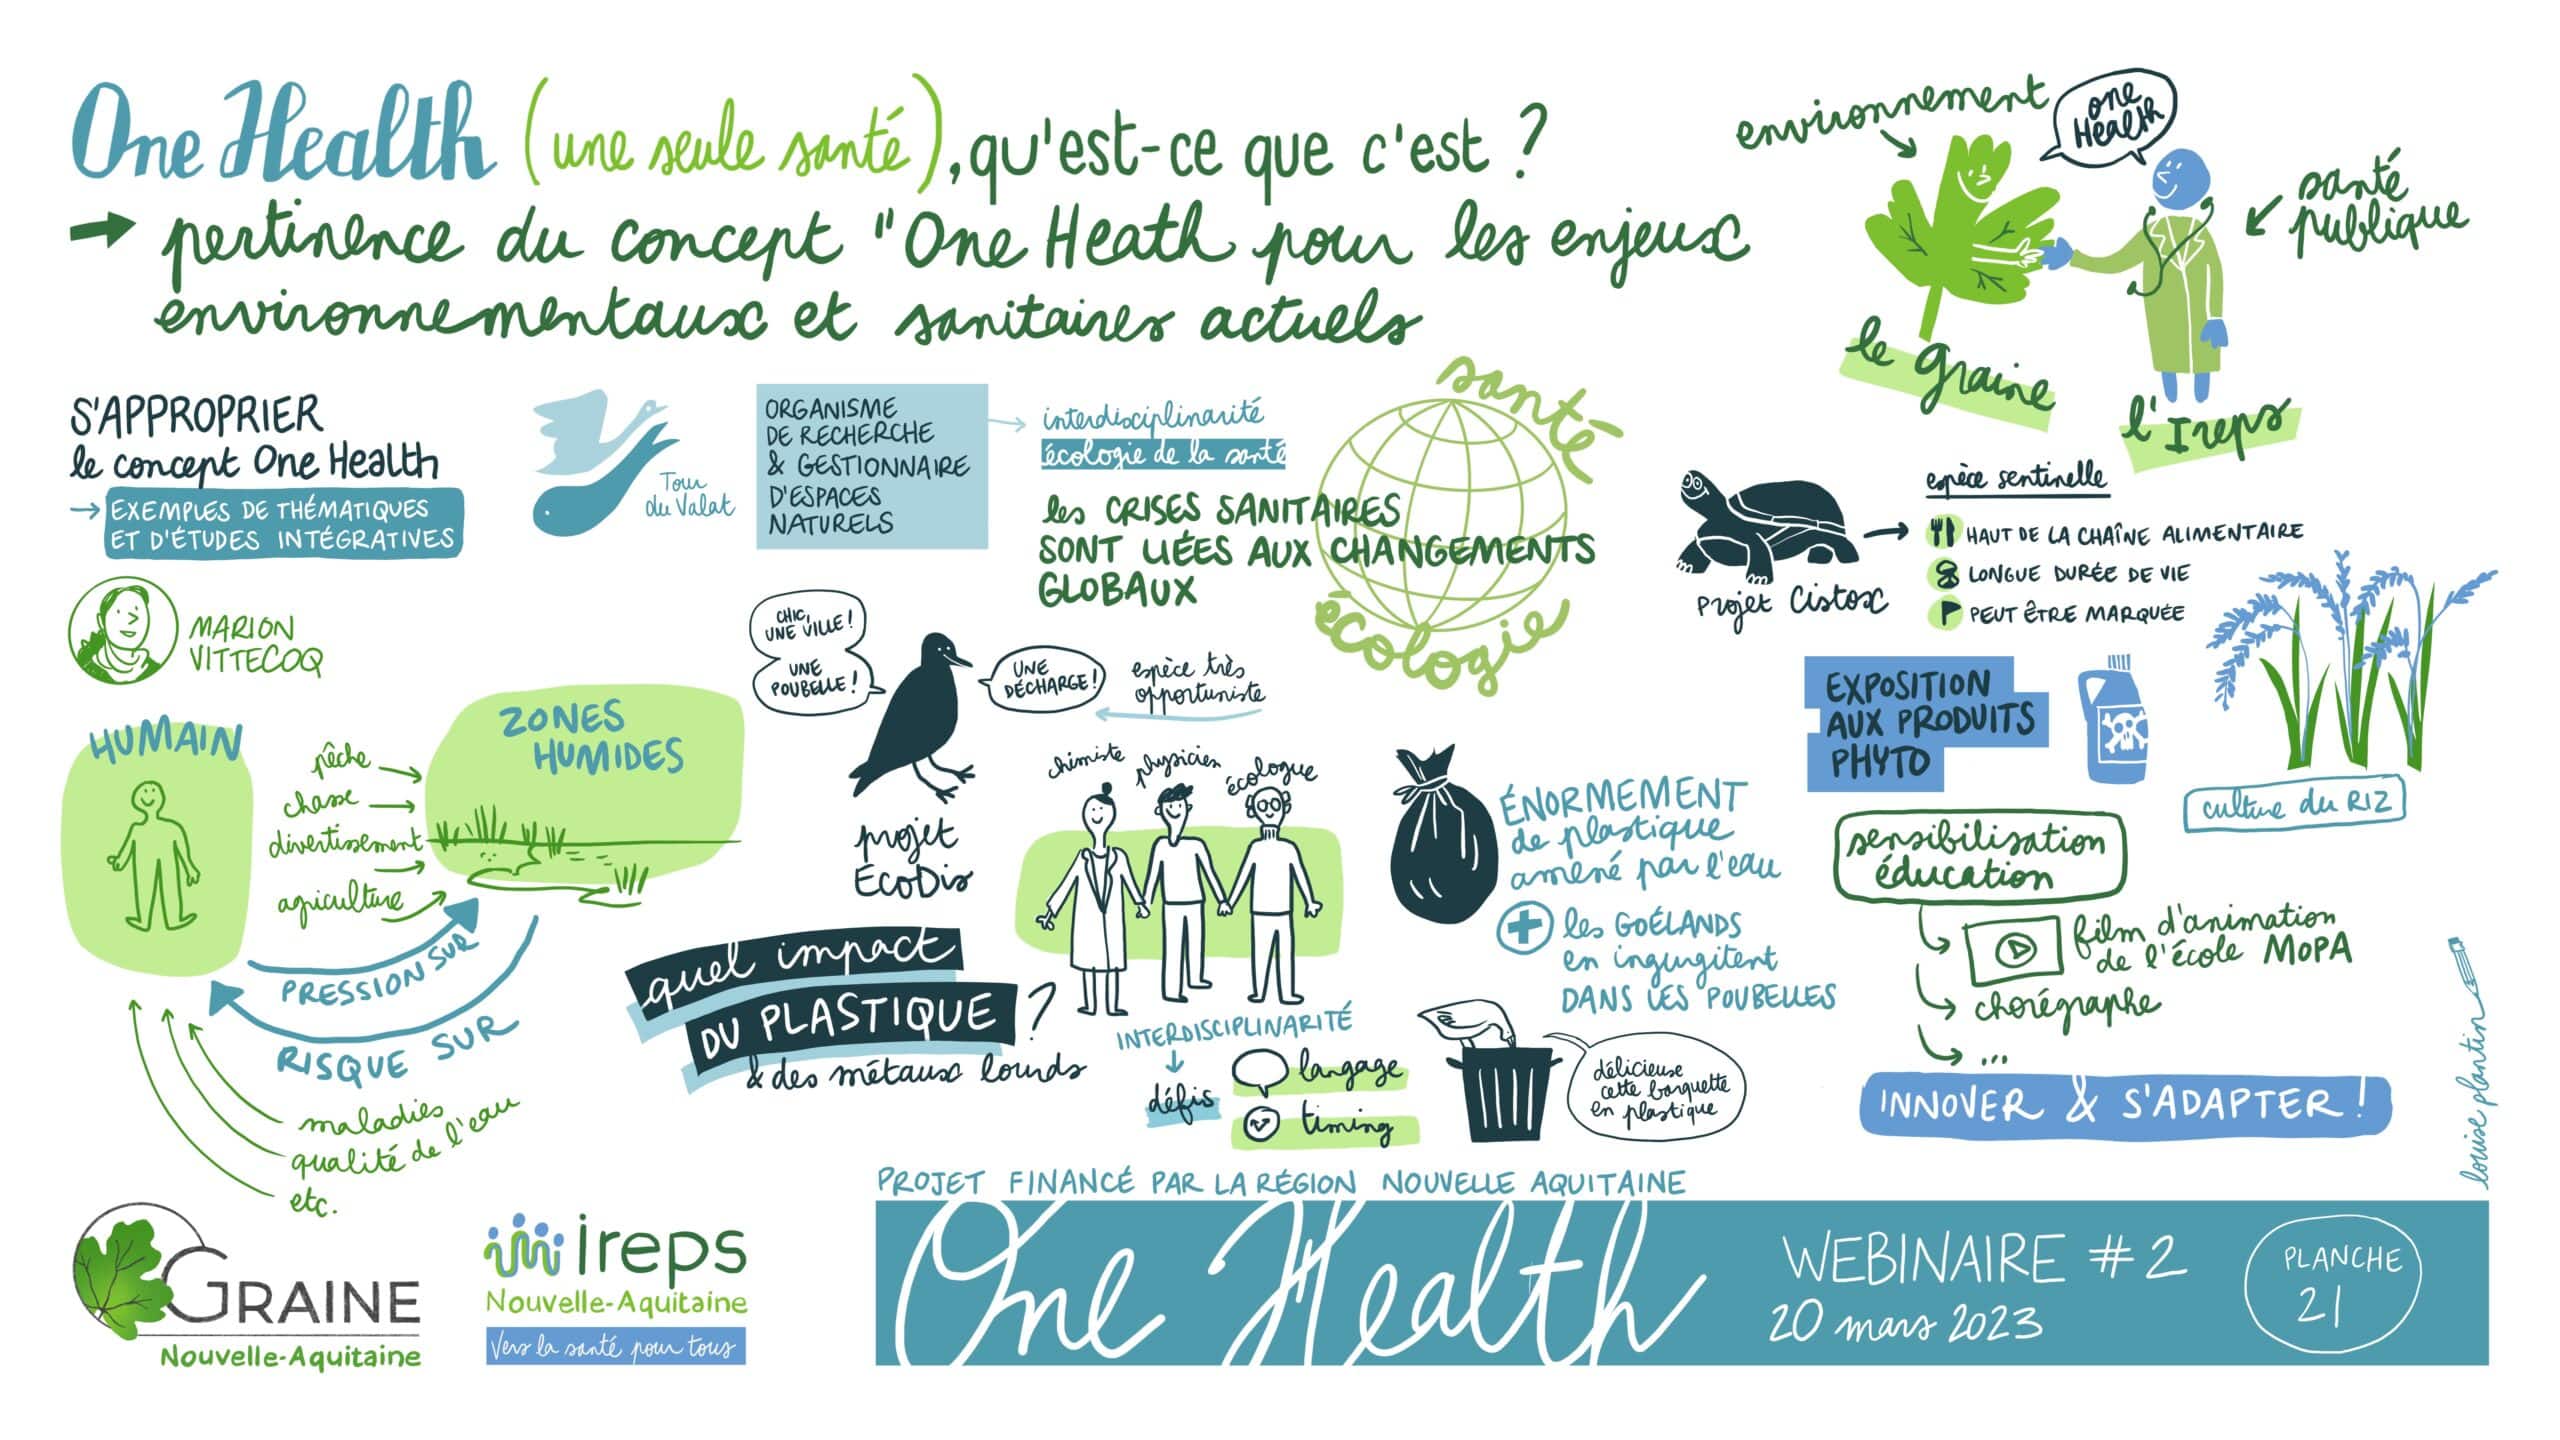 One Health (une seule santé), qu'est-ce que c'est ?
→ pertinence du concept "One Heath pour les enjeux
environnementaux et sanitaires actuels
environnement
one
Health
santé
publique
le Graine
l'Ireps
S'APPROPRIER
le concept One Health
→ EXEMPLES DE THÉMATIQUES
ET D'ÉTUDES INTÉGRATIVES
MARION
VITTECOQ
Tour
du Valat
ORGANISME
DE RECHERCHE
& GESTIONNAIRE
D'ESPACES
NATURELS
interdisciplinarité
écologie de la santé
les CRISES SANITAIRES
SONT LIÉES AUX CHANGEMENTS
GLOBAUX
santé
écologie
Projet Cistox
espèce sentinelle
HAUT DE LA CHAÎNE ALIMENTAIRE
LONGUE DURÉE DE VIE
PEUT ÊTRE MARQUÉE
HUMAIN
pêche
chasse
divertissement
agriculture
ZONES
HUMIDES
PRESSION SUR
RISQUE SUR
maladies
qualité de l'eau
etc.
CHIC,
UNE VILLE !
UNE
POUBELLE !
UNE
DÉCHARGE !
espèce très
opportuniste
projet
EcoDis
quel impact
DU PLASTIQUE ?
& des métaux lourds
chimiste
physicien
écologue
INTERDISCIPLINARITÉ
défis
langage
timing
ÉNORMEMENT
de plastique
amené par l'eau
+ les GOÉLANDS
en ingurgitent
DANS LES POUBELLES
délicieuse
cette barquette
en plastique
EXPOSITION
AUX PRODUITS
PHYTO
culture du RIZ
sensibilisation
éducation
film d'animation
de l'école MoPA
chorégraphe
...
INNOVER & S'ADAPTER !
louise plantin
GRAINE
Nouvelle-Aquitaine
ireps
Nouvelle-Aquitaine
Vers la santé pour tous
PROJET FINANCÉ PAR LA RÉGION NOUVELLE AQUITAINE
One Health
WEBINAIRE #2
20 mars 2023
PLANCHE
21